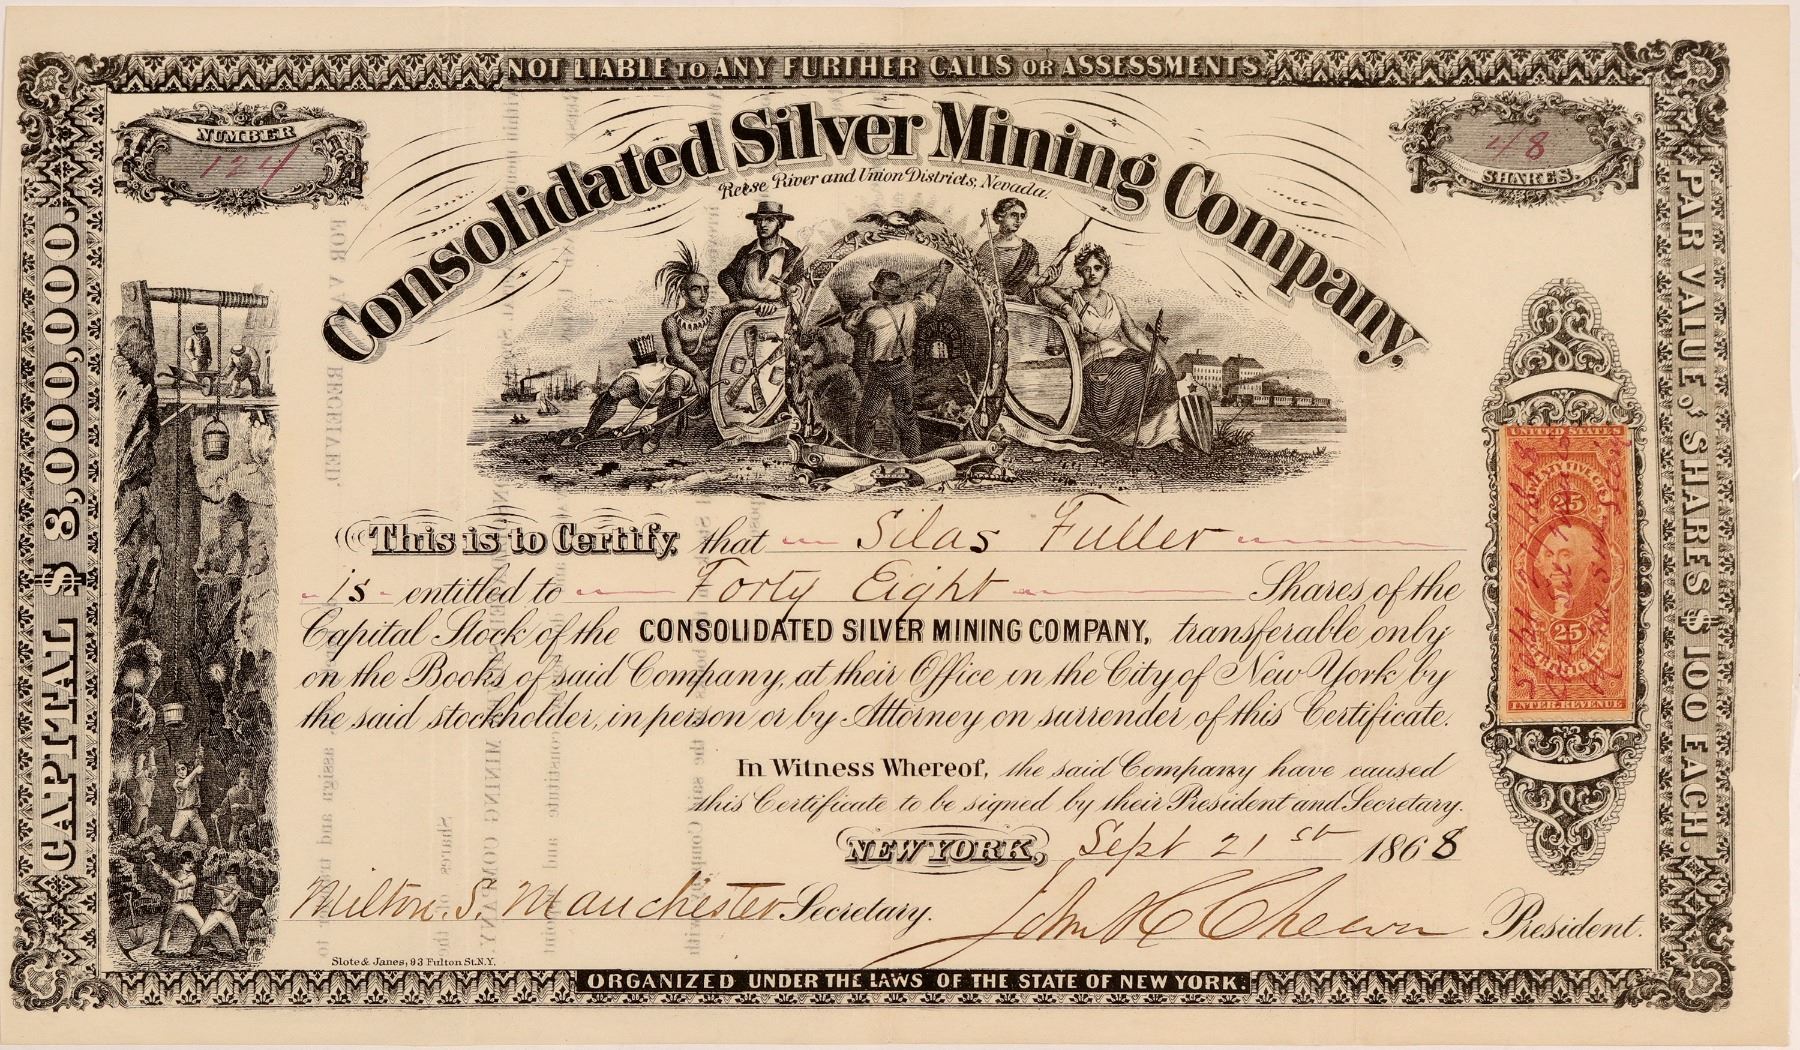 NOT LIABLE TO ANY FURTHER CALLS OR ASSESSMENTS.
NUMBER
124
48
SHARES.
Consolidated Silver Mining Company,
Reese River and Union Districts, Nevada.
CAPITAL $ 8,000,000.
PAR VALUE of SHARES $ 100 EACH.
This is to Certify, that Silas Fuller
is entitled to Forty Eight Shares of the
Capital Stock of the CONSOLIDATED SILVER MINING COMPANY, transferable only
on the Books of said Company, at their Office in the City of New York by
the said stockholder, in person or by Attorney on surrender of this Certificate.
In Witness Whereof, the said Company have caused
this Certificate to be signed by their President and Secretary.
NEW YORK, Sept 21st 1868
Milton. S. Manchester Secretary.
President.
Slote & Janes, 93 Fulton St. N.Y.
ORGANIZED UNDER THE LAWS OF THE STATE OF NEW YORK.
UNITED STATES
25
25
CERTIFICATE
INTER. REVENUE